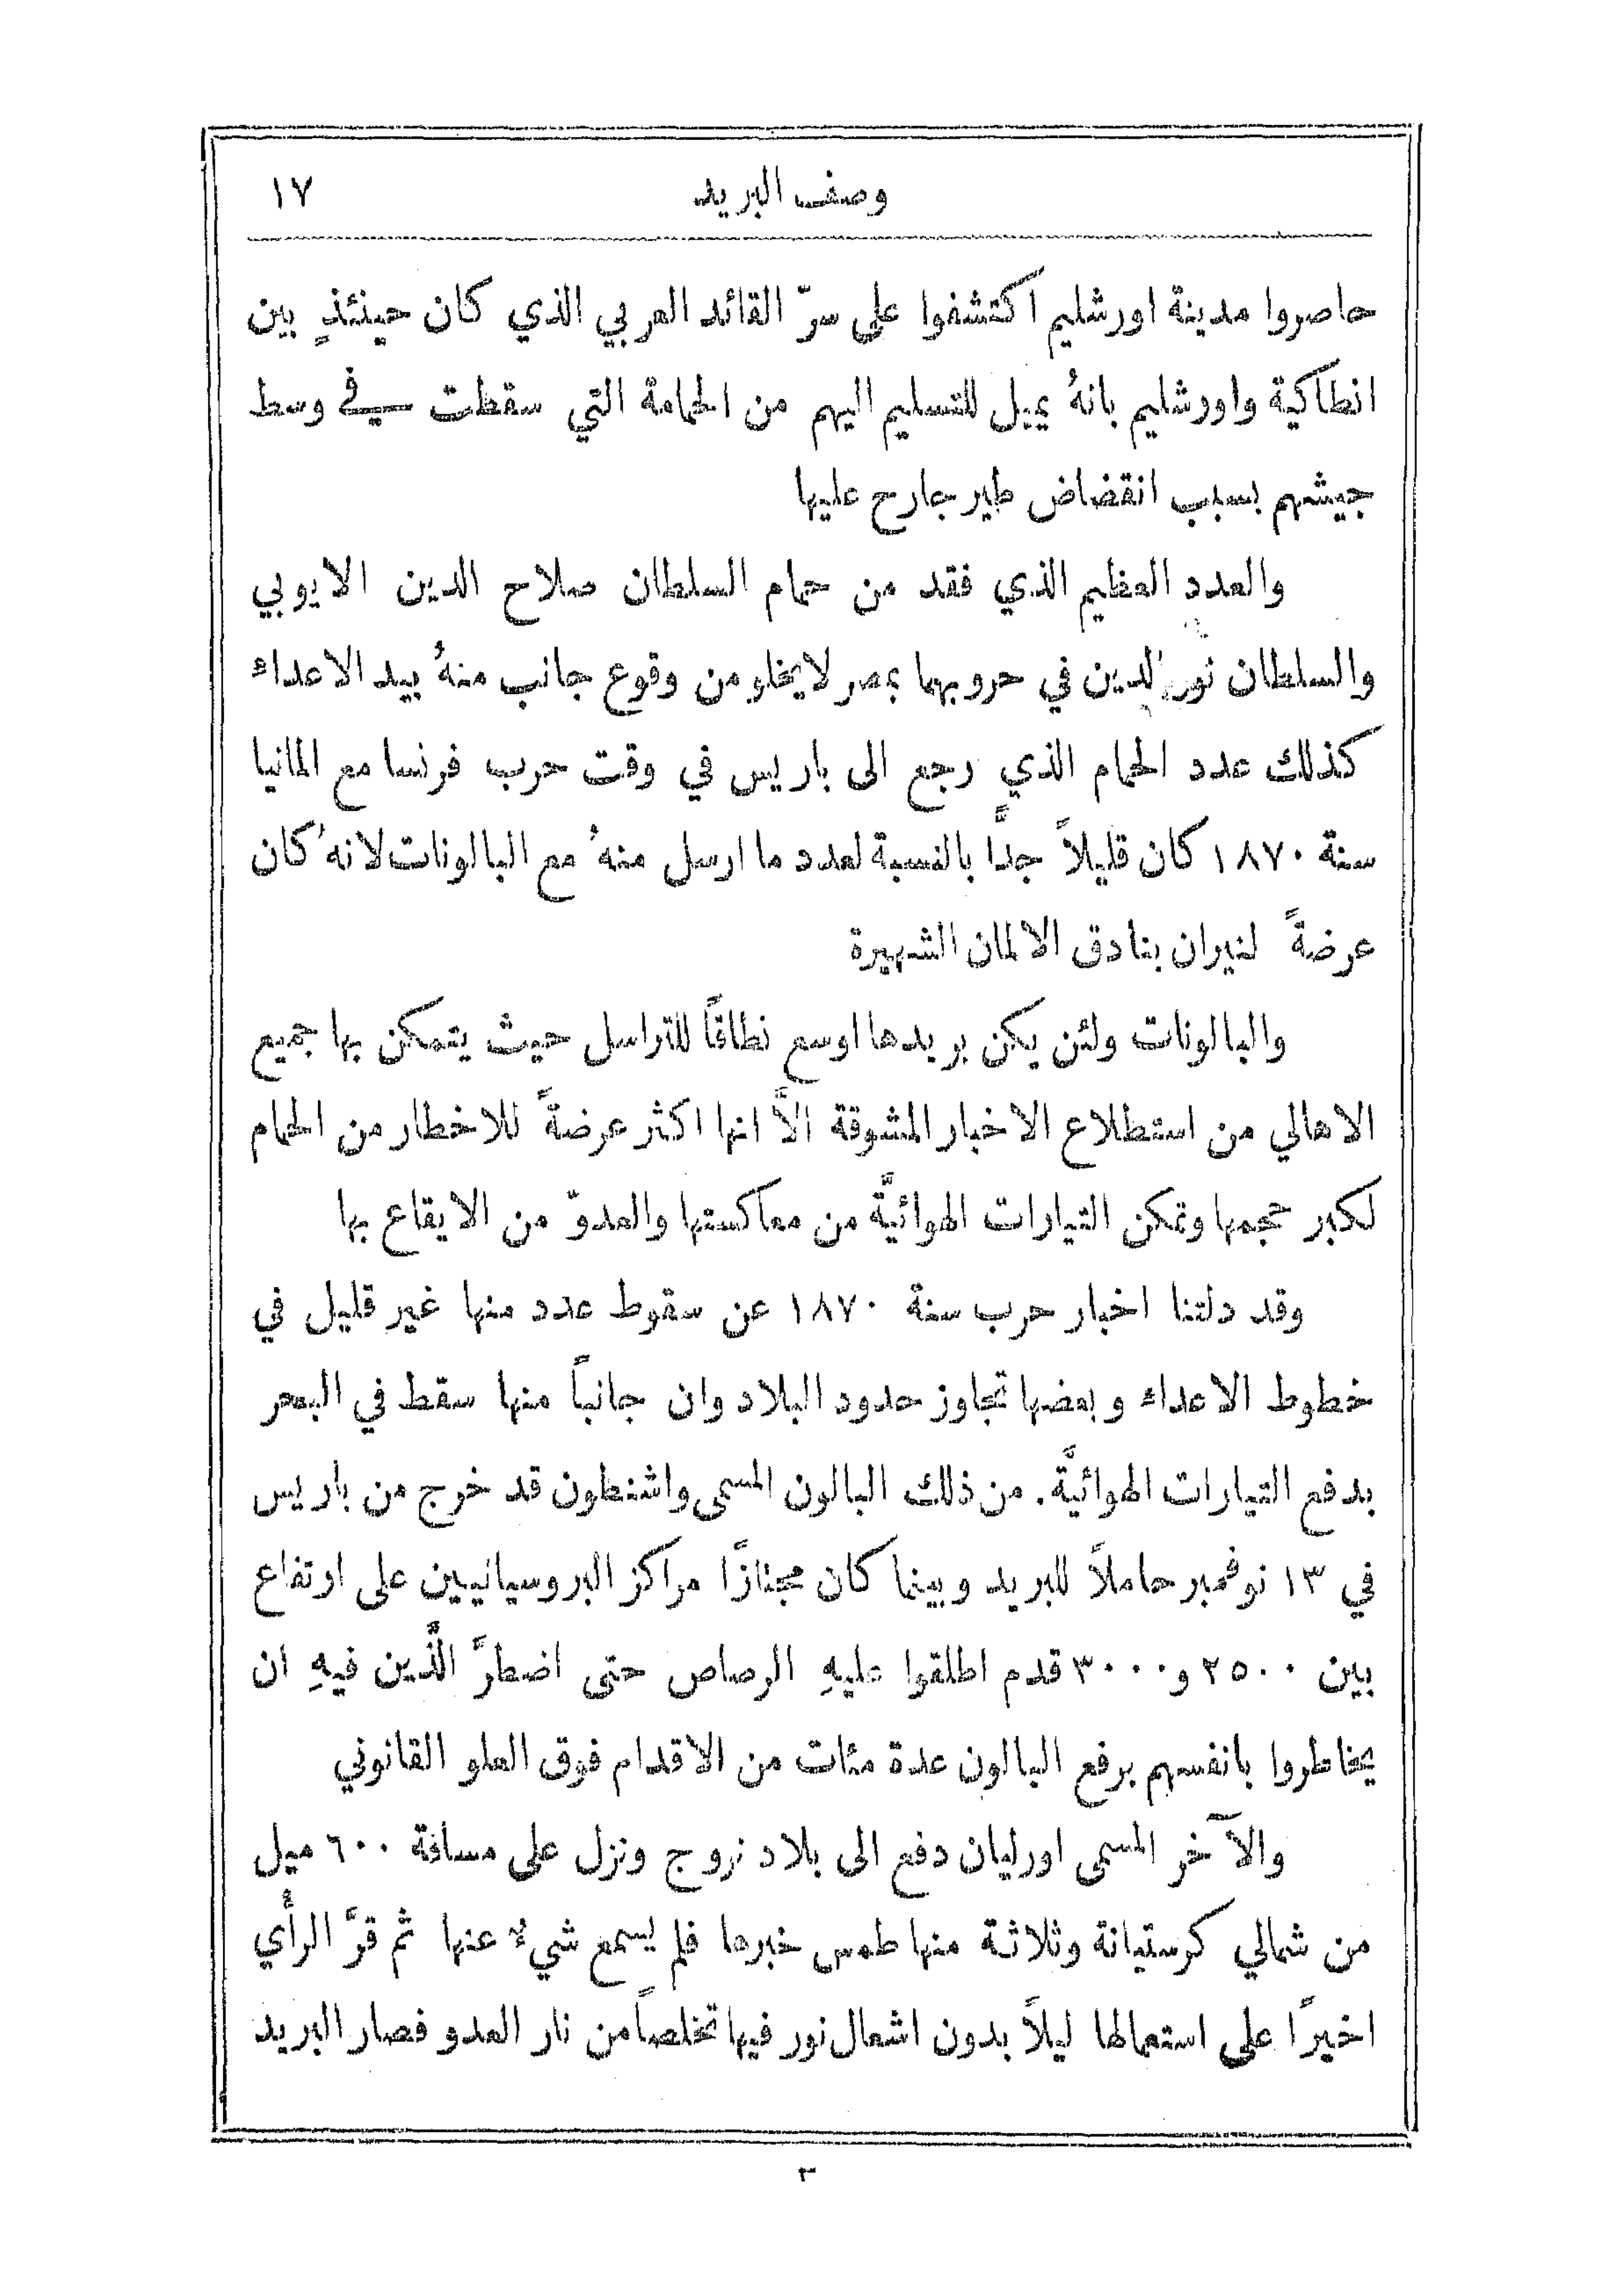 وصف البريد ١٧
حاصروا مدينة اورشليم اكتشفوا على سرّ القائد العربي الذي كان حينئذٍ بين
انطاكية واورشليم بانهُ يميل للتسليم اليهم من الحمامة التي سقطت في وسط
جيشهم بسبب انقضاض طير جارح عليها
والعدد العظيم الذي فقد من حمام السلطان صلاح الدين الايوبي
والسلطان نور الدين في حروبهما بمصر لا يخلو من وقوع جانب منهُ بيد الاعداء
كذلك عدد الحمام الذي رجع الى باريس في وقت حرب فرنسا مع المانيا
سنة ١٨٧٠ كان قليلاً جدًّا بالنسبة لعدد ما ارسل منهُ مع البالونات لانهُ كان
عرضةً لنيران بنادق الالمان الشهيرة
والبالونات ولئن يكن بريدها اوسع نطاقاً للتراسل حيث يتمكن بها جميع
الاهالي من استطلاع الاخبار المشوقة الَّا انها اكثر عرضةً للاخطار من الحمام
لكبر حجمها وتمكن التيارات الهوائيَّة من معاكستها والعدوّ من الايقاع بها
وقد دلتنا اخبار حرب سنة ١٨٧٠ عن سقوط عدد منها غير قليل في
خطوط الاعداء وبعضها تجاوز حدود البلاد وان جانباً منها سقط في البحر
بدفع التيارات الهوائيَّة. من ذلك البالون المسمى واشنطون قد خرج من باريس
في ١٣ نوفمبر حاملاً للبريد وبينما كان مجتازًا مراكز البروسيانيين على ارتفاع
بين ٢٥٠٠ و٣٠٠٠ قدم اطلقوا عليهِ الرصاص حتى اضطرَّ الَّذين فيهِ ان
يخاطروا بانفسهم برفع البالون عدة مئات من الاقدام فوق العلو القانوني
والآخر المسمى اورليان دفع الى بلاد نروج ونزل على مسافة ٦٠٠ ميل
من شمالي كرستيانة وثلاثة منها طمس خبرها فلم يسمع شيءٌ عنها ثم قرَّ الرأي
اخيرًا على استعمالها ليلاً بدون اشعال نور فيها تخلصاً من نار العدو فصار البريد
٣